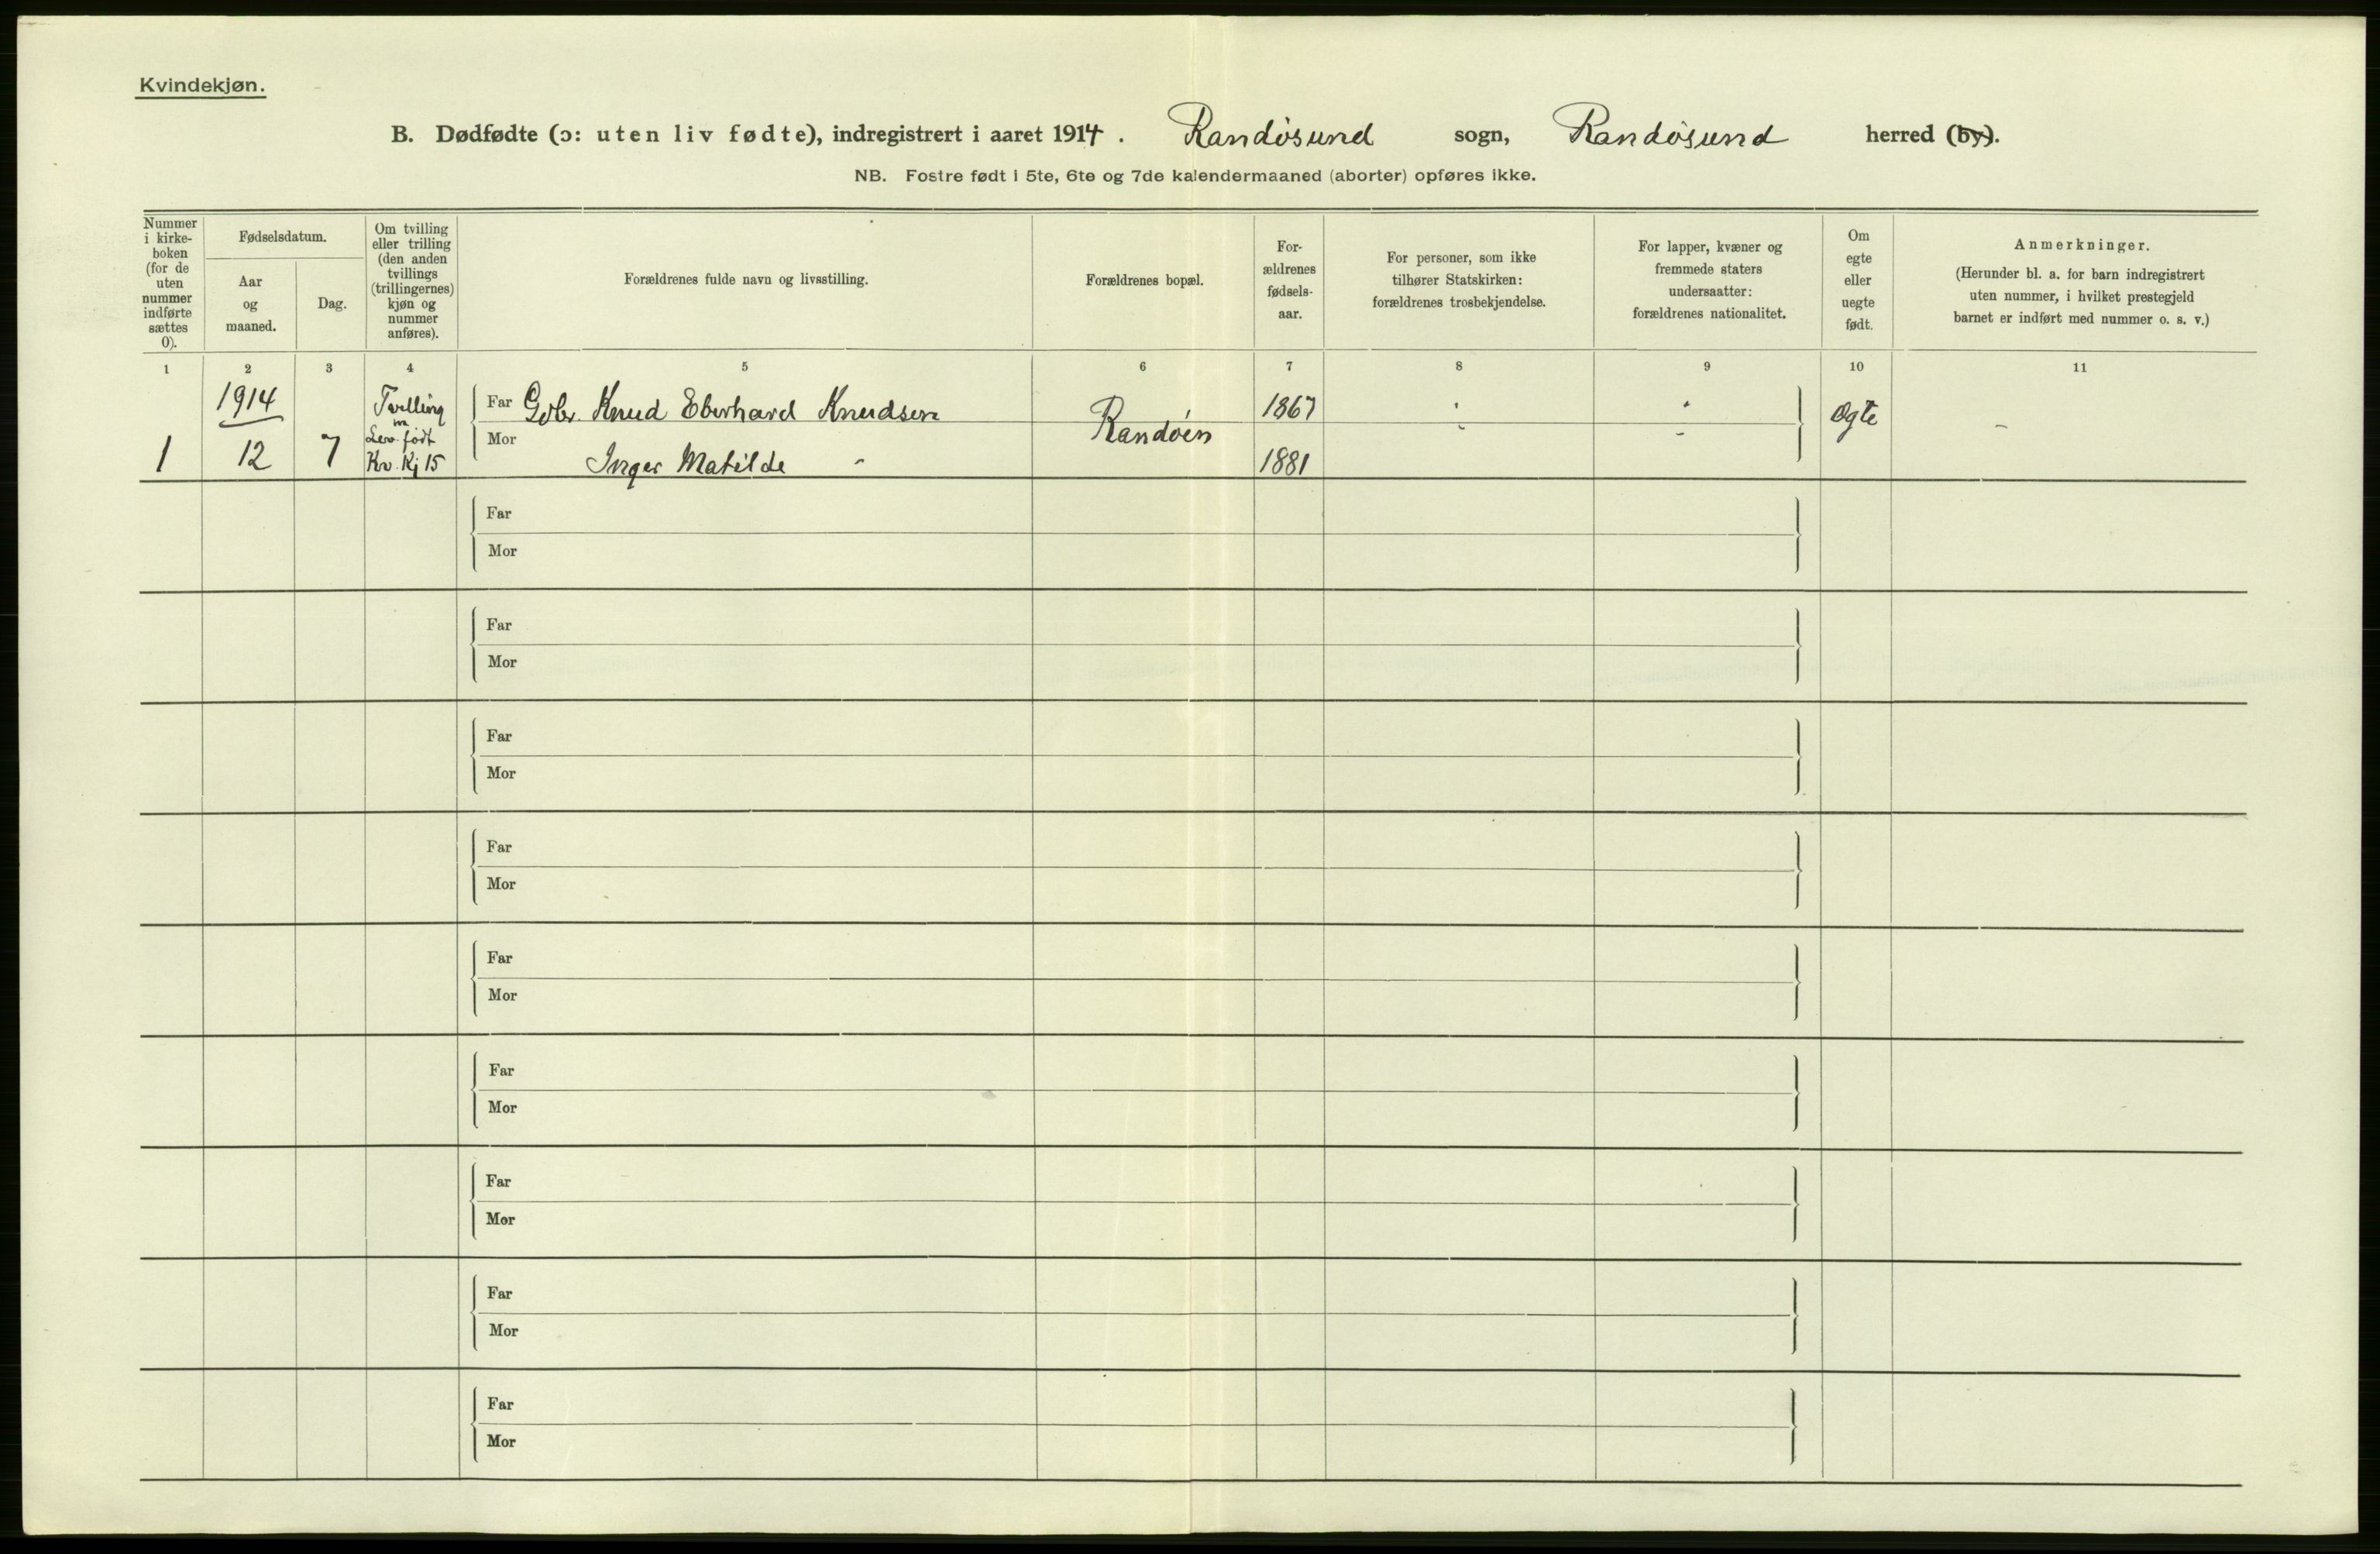 Kvindekjøn.
B. Dødfødte (ɔ: uten liv fødte), indregistrert i aaret 1914. Randøsund sogn, Randøsund herred (by).
NB. Fostre født i 5te, 6te og 7de kalendermaaned (aborter) opføres ikke.
Nummer
i kirke-
boken
(for de
uten
nummer
indførte
sættes
0).
Fødselsdatum.
Aar
og
maaned.
Dag.
Om tvilling
eller trilling
(den anden
tvillings
(trillingernes)
kjøn og
nummer
anføres).
Forældrenes fulde navn og livsstilling.
Forældrenes bopæl.
For-
ældrenes
fødsels-
aar.
For personer, som ikke
tilhører Statskirken:
forældrenes trosbekjendelse.
For lapper, kvæner og
fremmede staters
undersaatter:
forældrenes nationalitet.
Om
egte
eller
uegte
født.
Anmerkninger.
(Herunder bl. a. for barn indregistrert
uten nummer, i hvilket prestegjeld
barnet er indført med nummer o. s. v.)
1 2 3 4 5 6 7 8 9 10 11
1914
1 12 7
Tvilling
Lev. født
Kv. Kj 15
Far Gdbr. Knud Eberhard Knudsen
Mor Inger Matilde -
Randøen
1867
1881
Ogte
-
Far
Mor
Far
Mor
Far
Mor
Far
Mor
Far
Mor
Far
Mor
Far
Mor
Far
Mor
Far
Mor